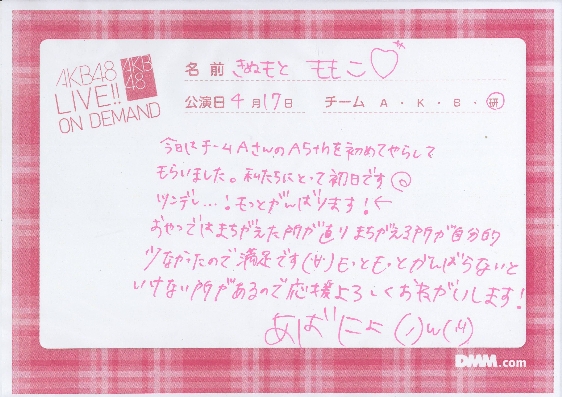 AKB48
LIVE!!
ON DEMAND
AKB
48
名前 きぬもと ももこ♡
公演日 4月17日 チーム A・K・B・研
今日はチームAさんのA5thを初めてやらして
もらいました。私たちにとって初日です
ツンデレ…!もっとがんばります!←
おやつではまちがえた所が直りまちがえる所が自分的
少なかったので満足です(·∀·)もっともっとがんばらないと
いけない所があるので応援よろしくおねがいします!
あばにょ
DMM.com